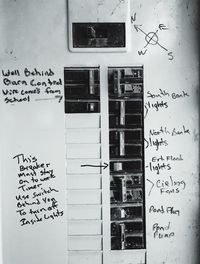 N
E
W
S
Well Behind
Barn Control
Wire comes from
School
South Bank
lights
North Bank
lights
This
Breaker
Must stay
on to work
Timer
Use Switch
Behind
To turn off
Inside Lights
lights
Fans
Pond
Pond
Pump